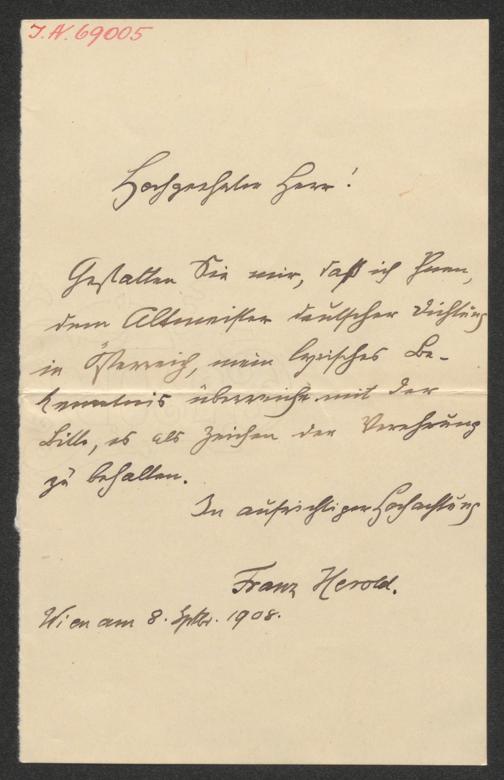 I.N. 69005
Hochgeehrter Herr!
Gestatten Sie mir, daß ich Ihnen,
dem Altmeister deutscher Dichtung
in Österreich, mein lyrisches Be-
kenntnis überreiche mit der
Bitte, es als Zeichen der Verehrung
zu behalten.
In aufrichtiger Hochachtung
Franz Herold.
Wien am 8. Septbr. 1908.